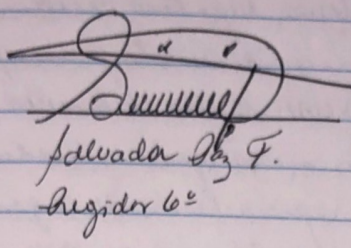 Salvador Díaz F.
Regidor 6º